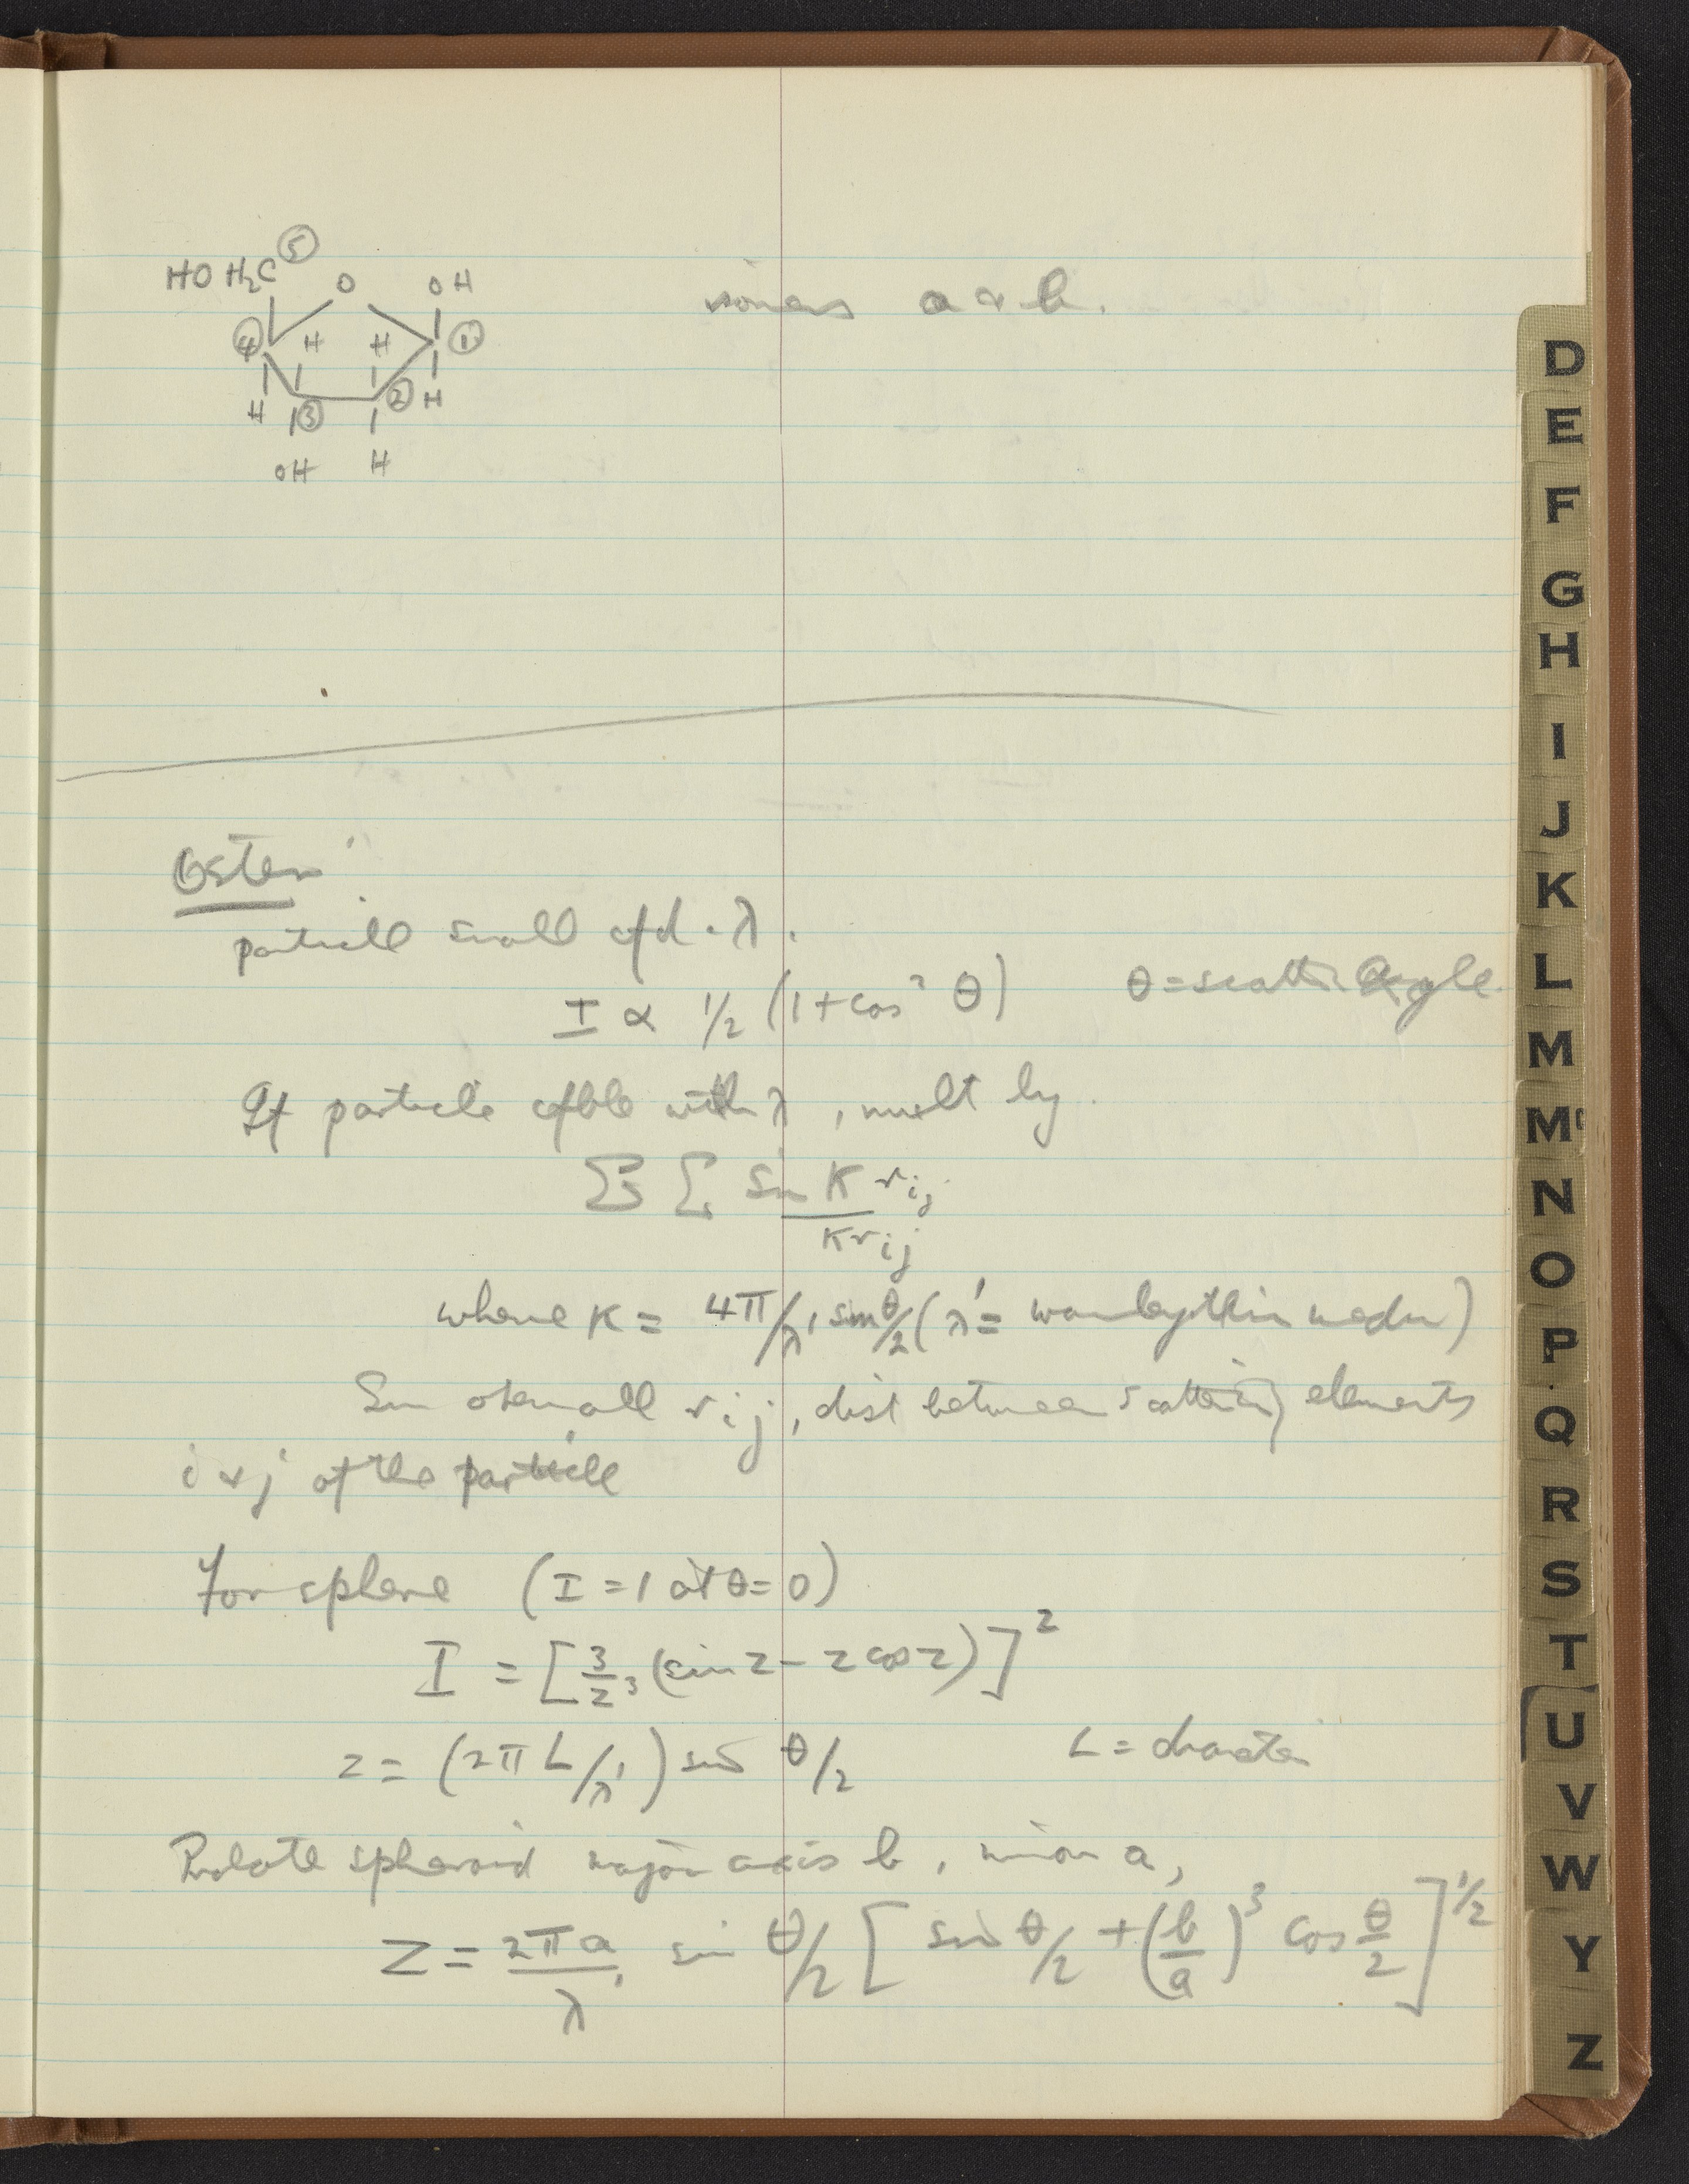 HO H₂C ⑤ O OH
④ H H ①
H ③ ② H
OH H
a & b.
Oster
particle small cfd. λ.
I ∝ 1/2 (1+cos² θ) θ = scatt. angle
If particle cfble with λ, mult by
Σ Σ sin K rij / K rij
where K = 4π/λ' sin θ/2 (λ' = wavelength in medm)
Sum over all rij, dist between scattering elements
i & j of the particle
For sphere (I = 1 at θ = 0)
I = [3/z³ (sin z - z cos z)]²
z = (2π L/λ') sin θ/2 L = diameter
Prolate spheroid major axis b, minor a,
Z = 2π a/λ' sin θ/2 [sin θ/2 + (b/a)³ cos θ/2]^1/2
D
E
F
G
H
I
J
K
L
M
Mc
N
O
P
Q
R
S
T
U
V
W
Y
Z